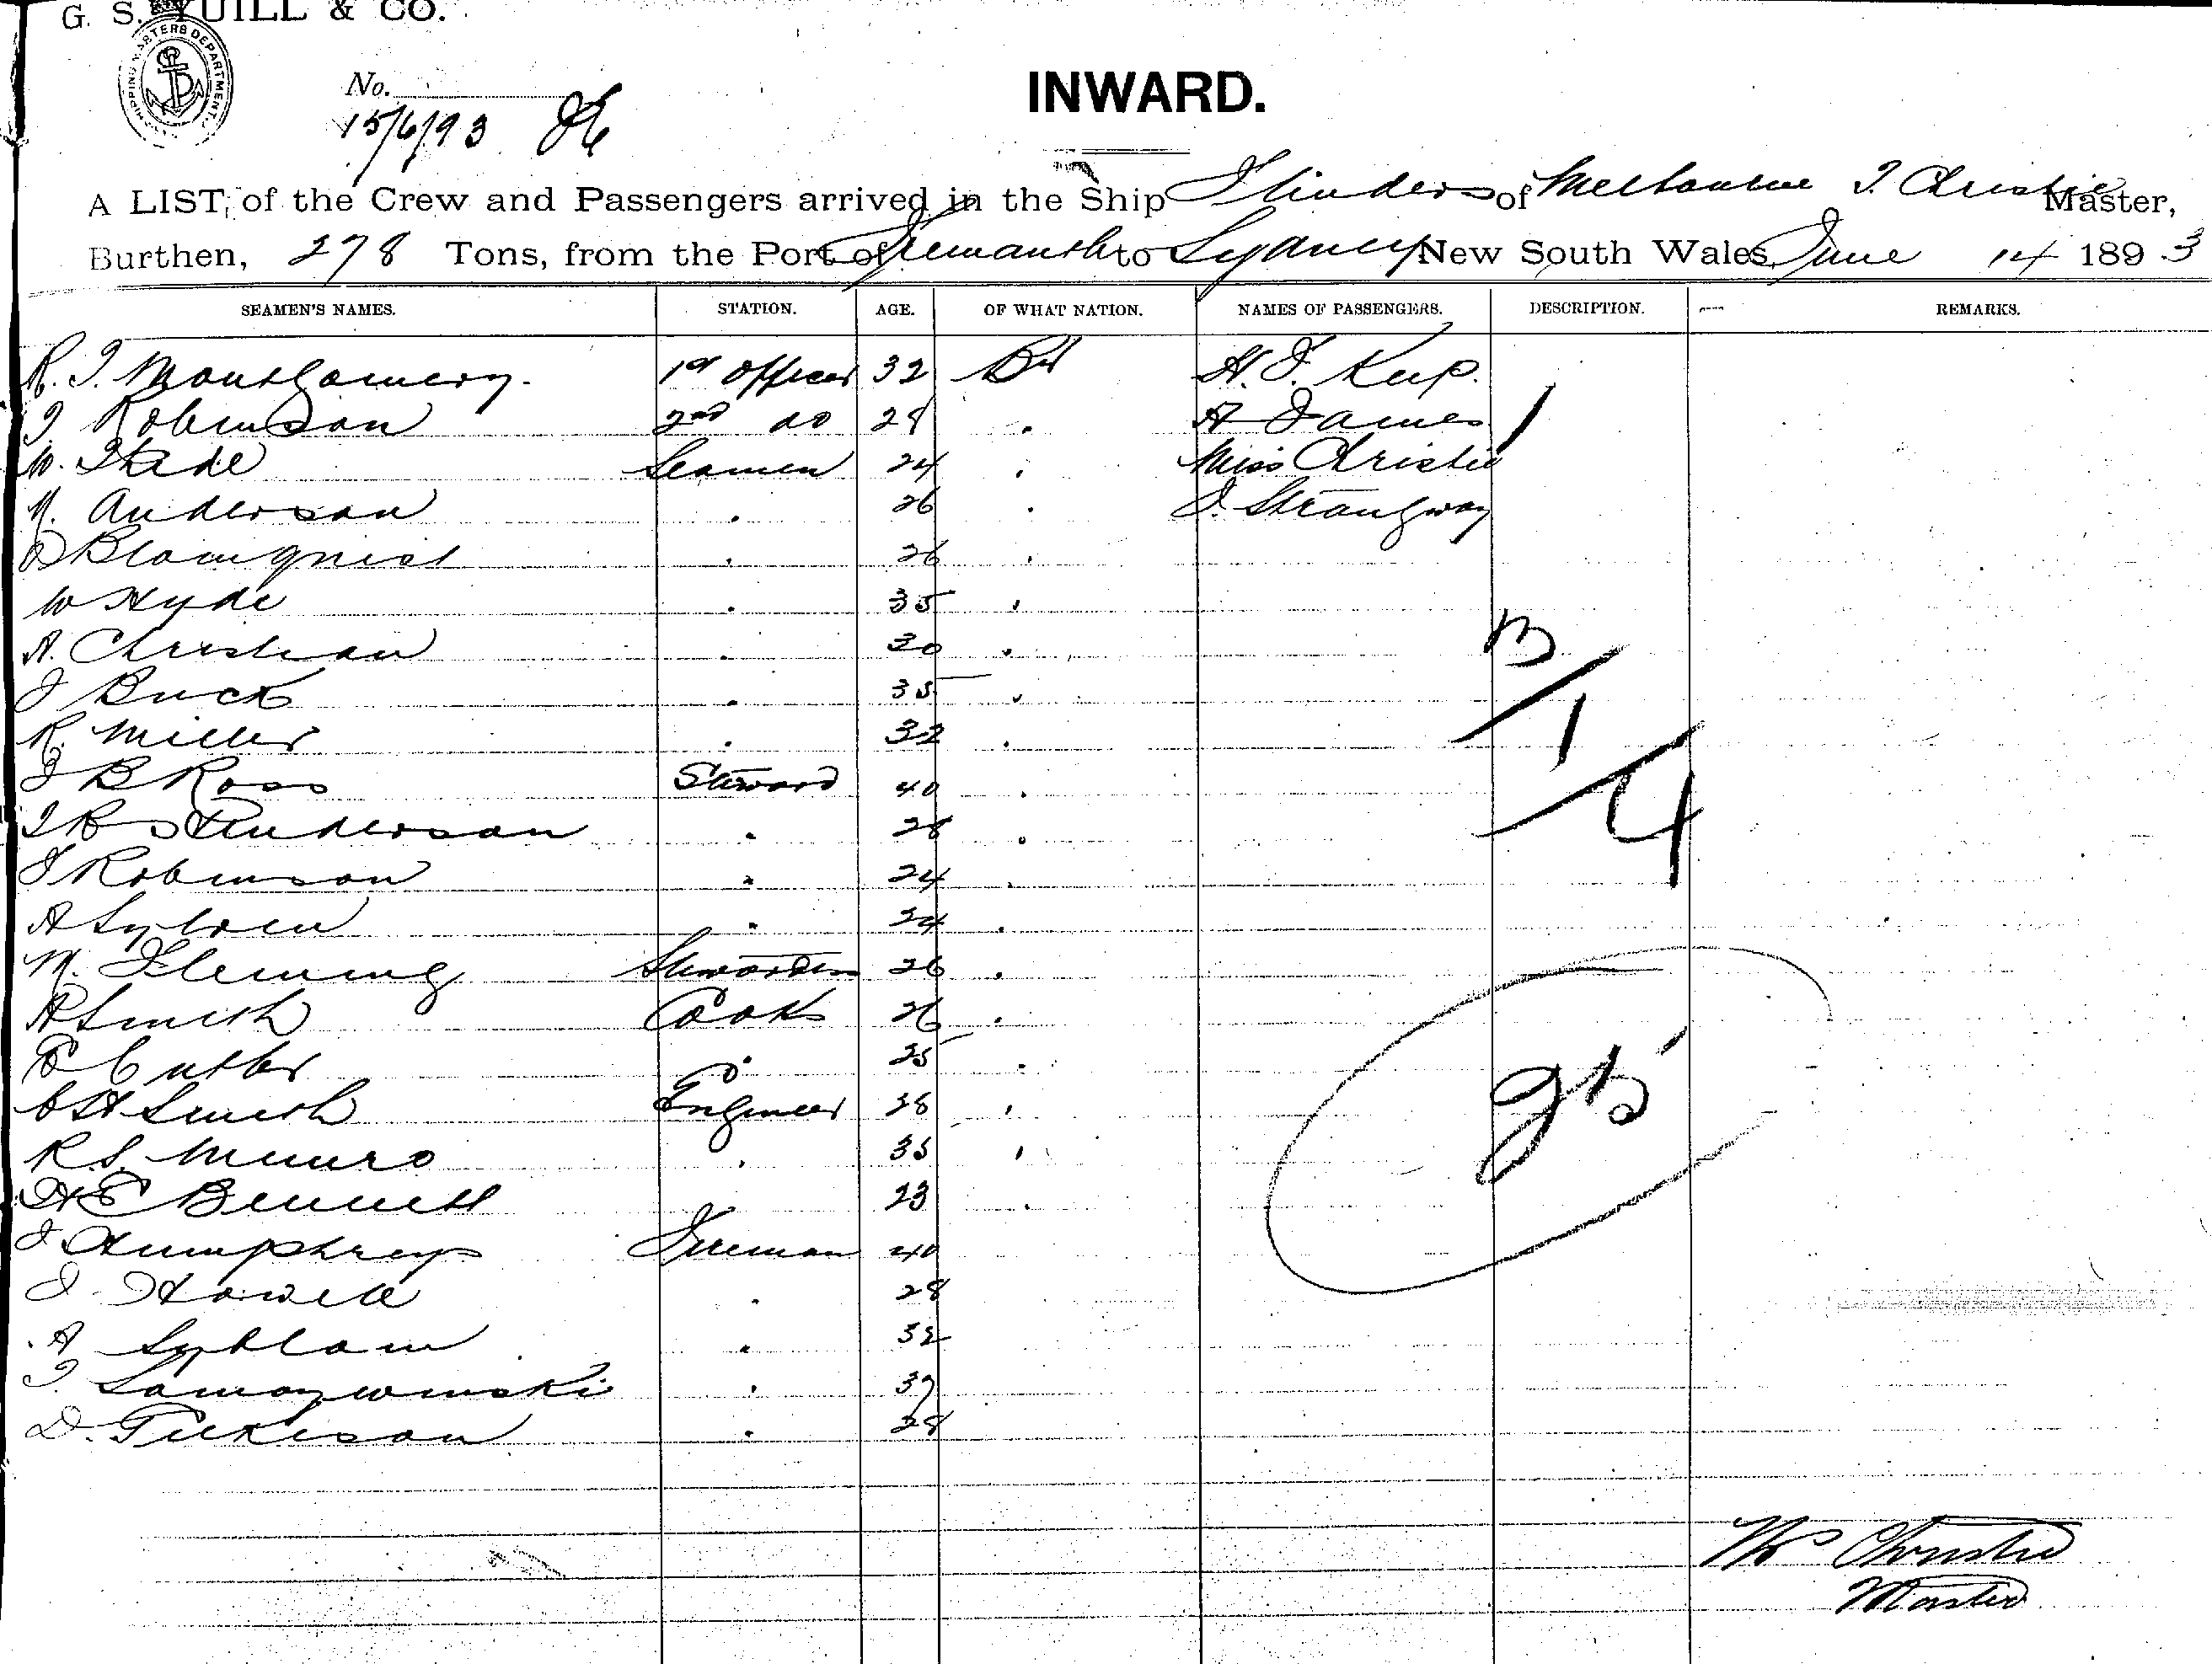 G. S. YUILL & CO.
SHIPPING MASTERS DEPARTMENT
No.
15/6/93
INWARD.
A LIST, of the Crew and Passengers arrived in the Ship Flinders of Melbourne T. Christie Master,
Burthen, 278 Tons, from the Port of Fremantle to Sydney New South Wales, June 14 1893
SEAMEN'S NAMES. STATION. AGE. OF WHAT NATION. NAMES OF PASSENGERS. DESCRIPTION. REMARKS.
R. T. Montgomery. 1st Officer 32 Brt H. F. Kup.
T Robinson 28 2nd do . A James
W. Slade Seamen 24 . Miss Christie
N. Anderson . 26 . J. Strangway
Blomqnist . 26 .
W Hyde . 35 .
A. Christian . 30 .
J Buck . 35 .
R. Miller . 32 .
J B Ross Steward 40 .
Henderson . 28 .
J Robinson . 24 .
A Sylven . 24 .
M. Fleming Stewardess 26 .
A Smith Cook 26 .
E Cutler . 25 .
C H Smith Engineer 28 .
R. S. Munro . 35 .
H E Bennett . 23 .
J Humphreys Fireman 40
J. Howell . 28
A Sydlam . 32
. 37
D. Tulkison . 28
3/1/4
25
Christie
Master